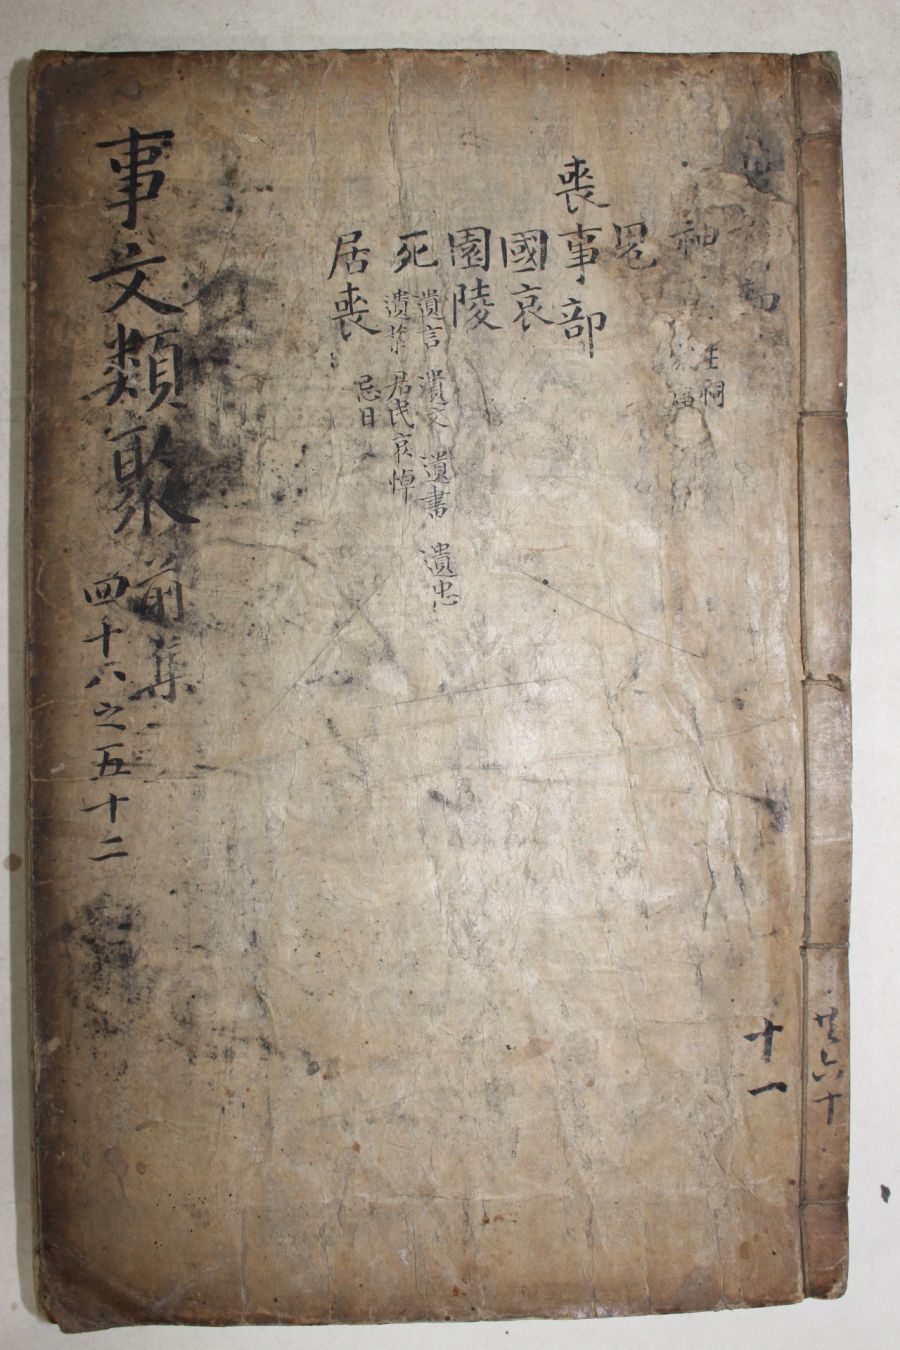 神
主祠
鬼
喪事部
國哀
園陵
死
遺言 遺文 遺書 遺忠
遺業 君民哀悼
居喪
忌日
事文類聚
前集
四十八之五十二
十一
共六十